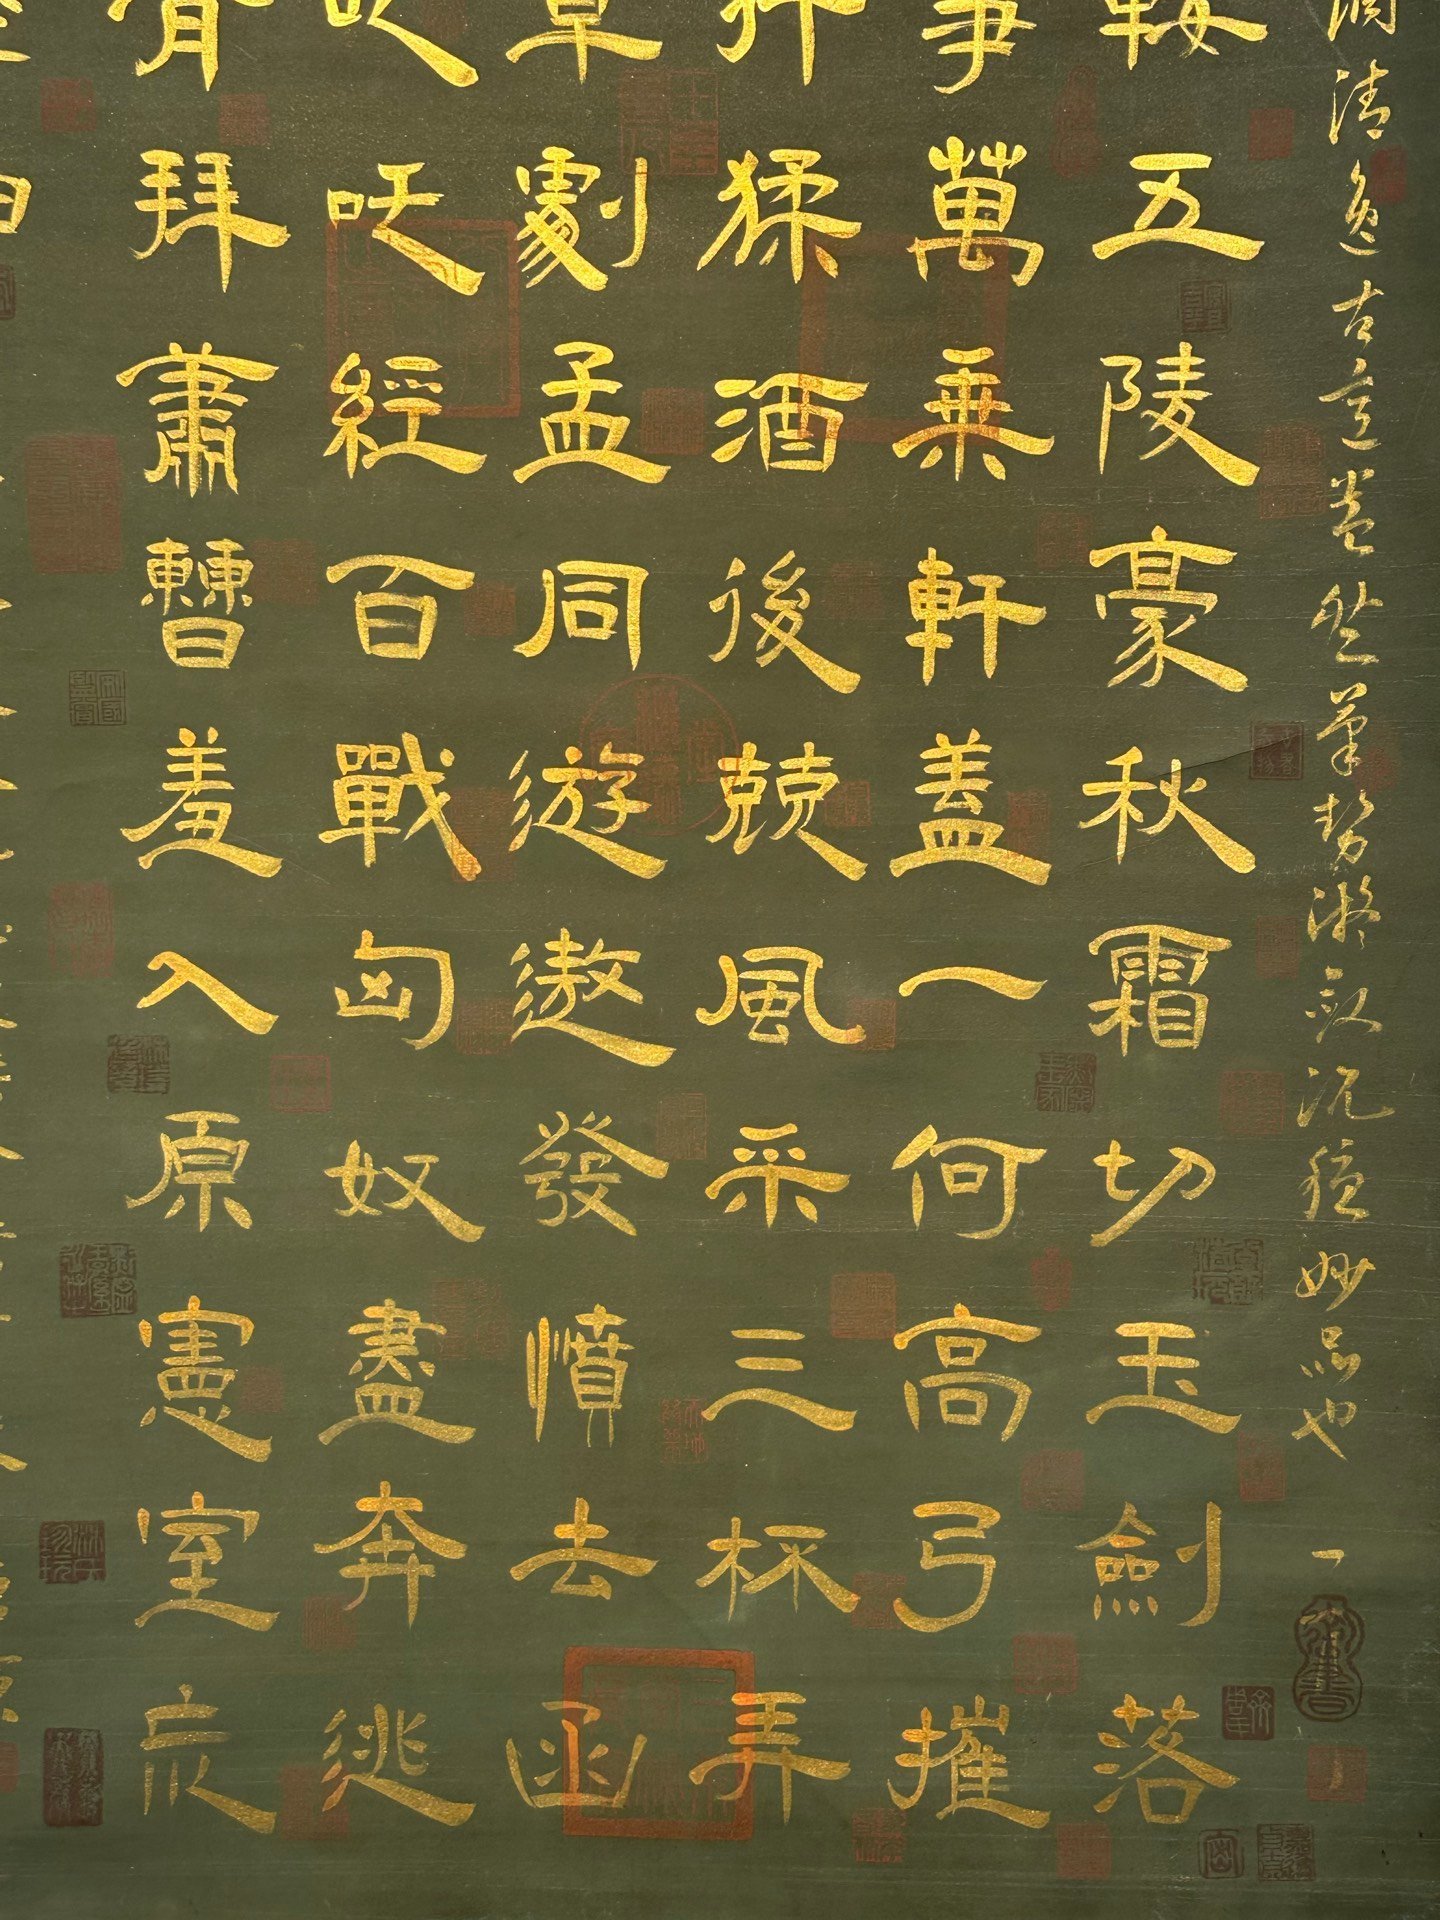 潤清逸古意盎然筆勢凝斂沉穩妙品也
鞍五陵豪秋霜切玉劍落
事萬乘軒蓋一何高弓摧
行猱酒後競風采三杯弄
草劇孟同遊遨發憤去函
叱吒經百戰匈奴盡奔逃
肯拜蕭曹羞入原憲室荒